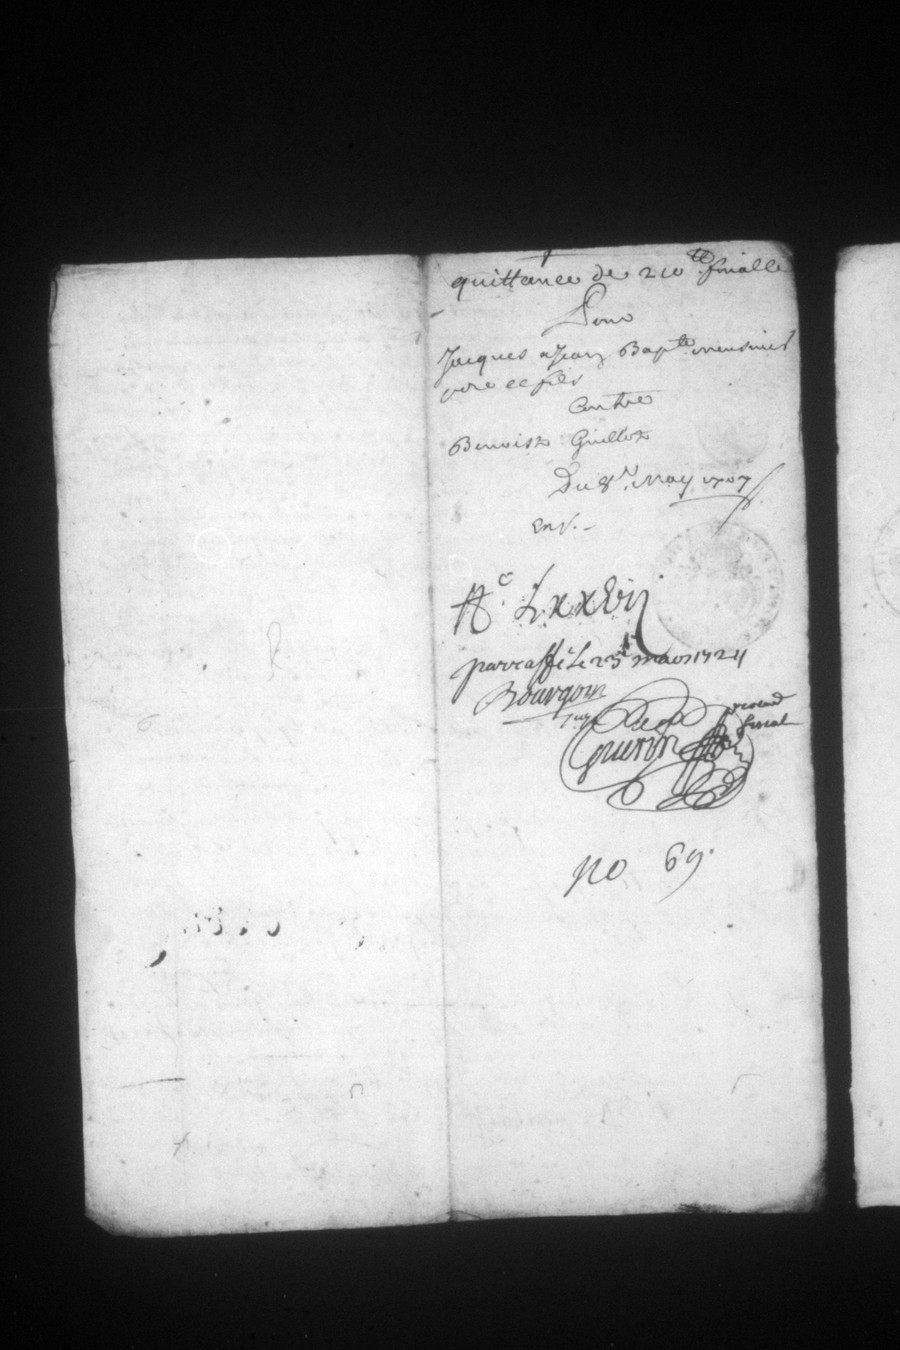 quittance de 210tt finalle
Pour
Jacques & Jean Bapte meusnier
pere et fils
Contre
Benoist Guillot
Du 8e. May 1707
Enr.
Ac. Lxxxviij
parraffé Le 23e mars 1724
Bourgoin
Juge
procureur
fiscal
Guerin
no 69.